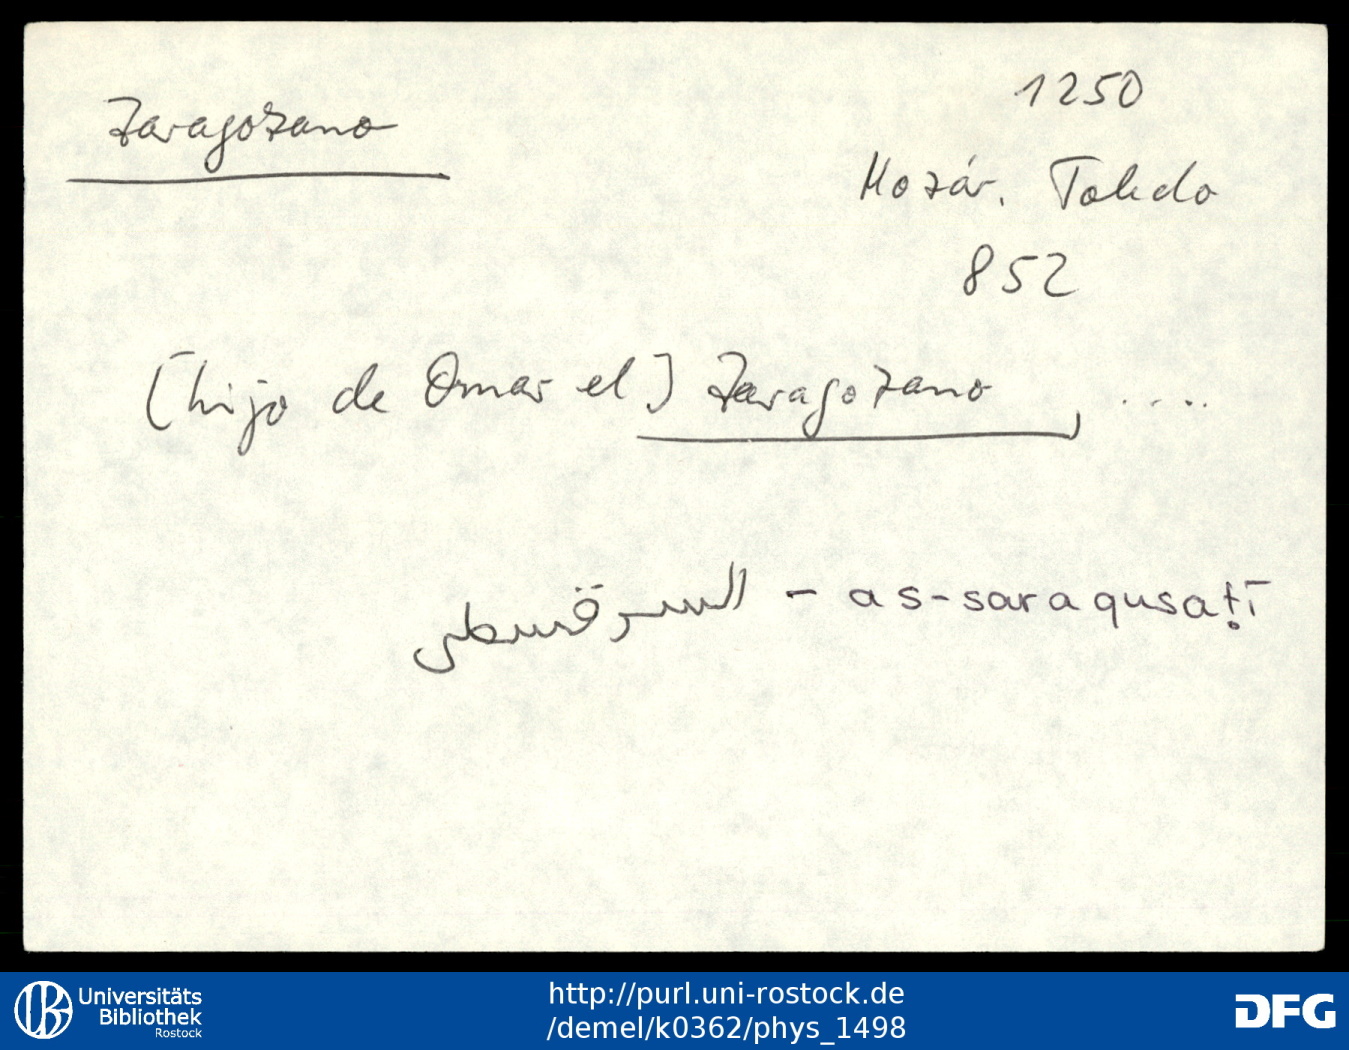 Zaragozano
1250
Mozár. Toledo
852
[hijo de Omar el] Zaragozano, ....
السرقسطى - as-saraqusaṭī
Universitäts
Bibliothek
Rostock
http://purl.uni-rostock.de
/demel/k0362/phys_1498
DFG